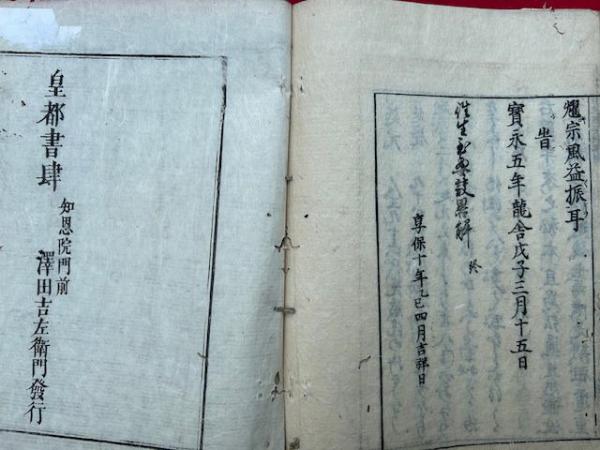 宗風益振耳
旹
寳永五年龍舎戊子三月十五日
往生至要訣畧解 終
享保十年乙巳四月吉祥日
皇都書肆
知恩院門前
澤田吉左衛門發行